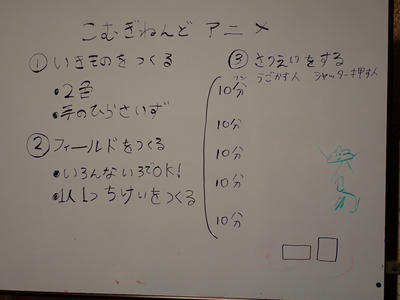 こむぎねんど アニメ
① いきものをつくる
・2色
・手のひらさいず
② フィールドをつくる
・いろんないろでOK!
・1人1つちけいをつくる
③ さつえいをする
うごかす人 シャッター押す人
10分
10分
10分
10分
10分